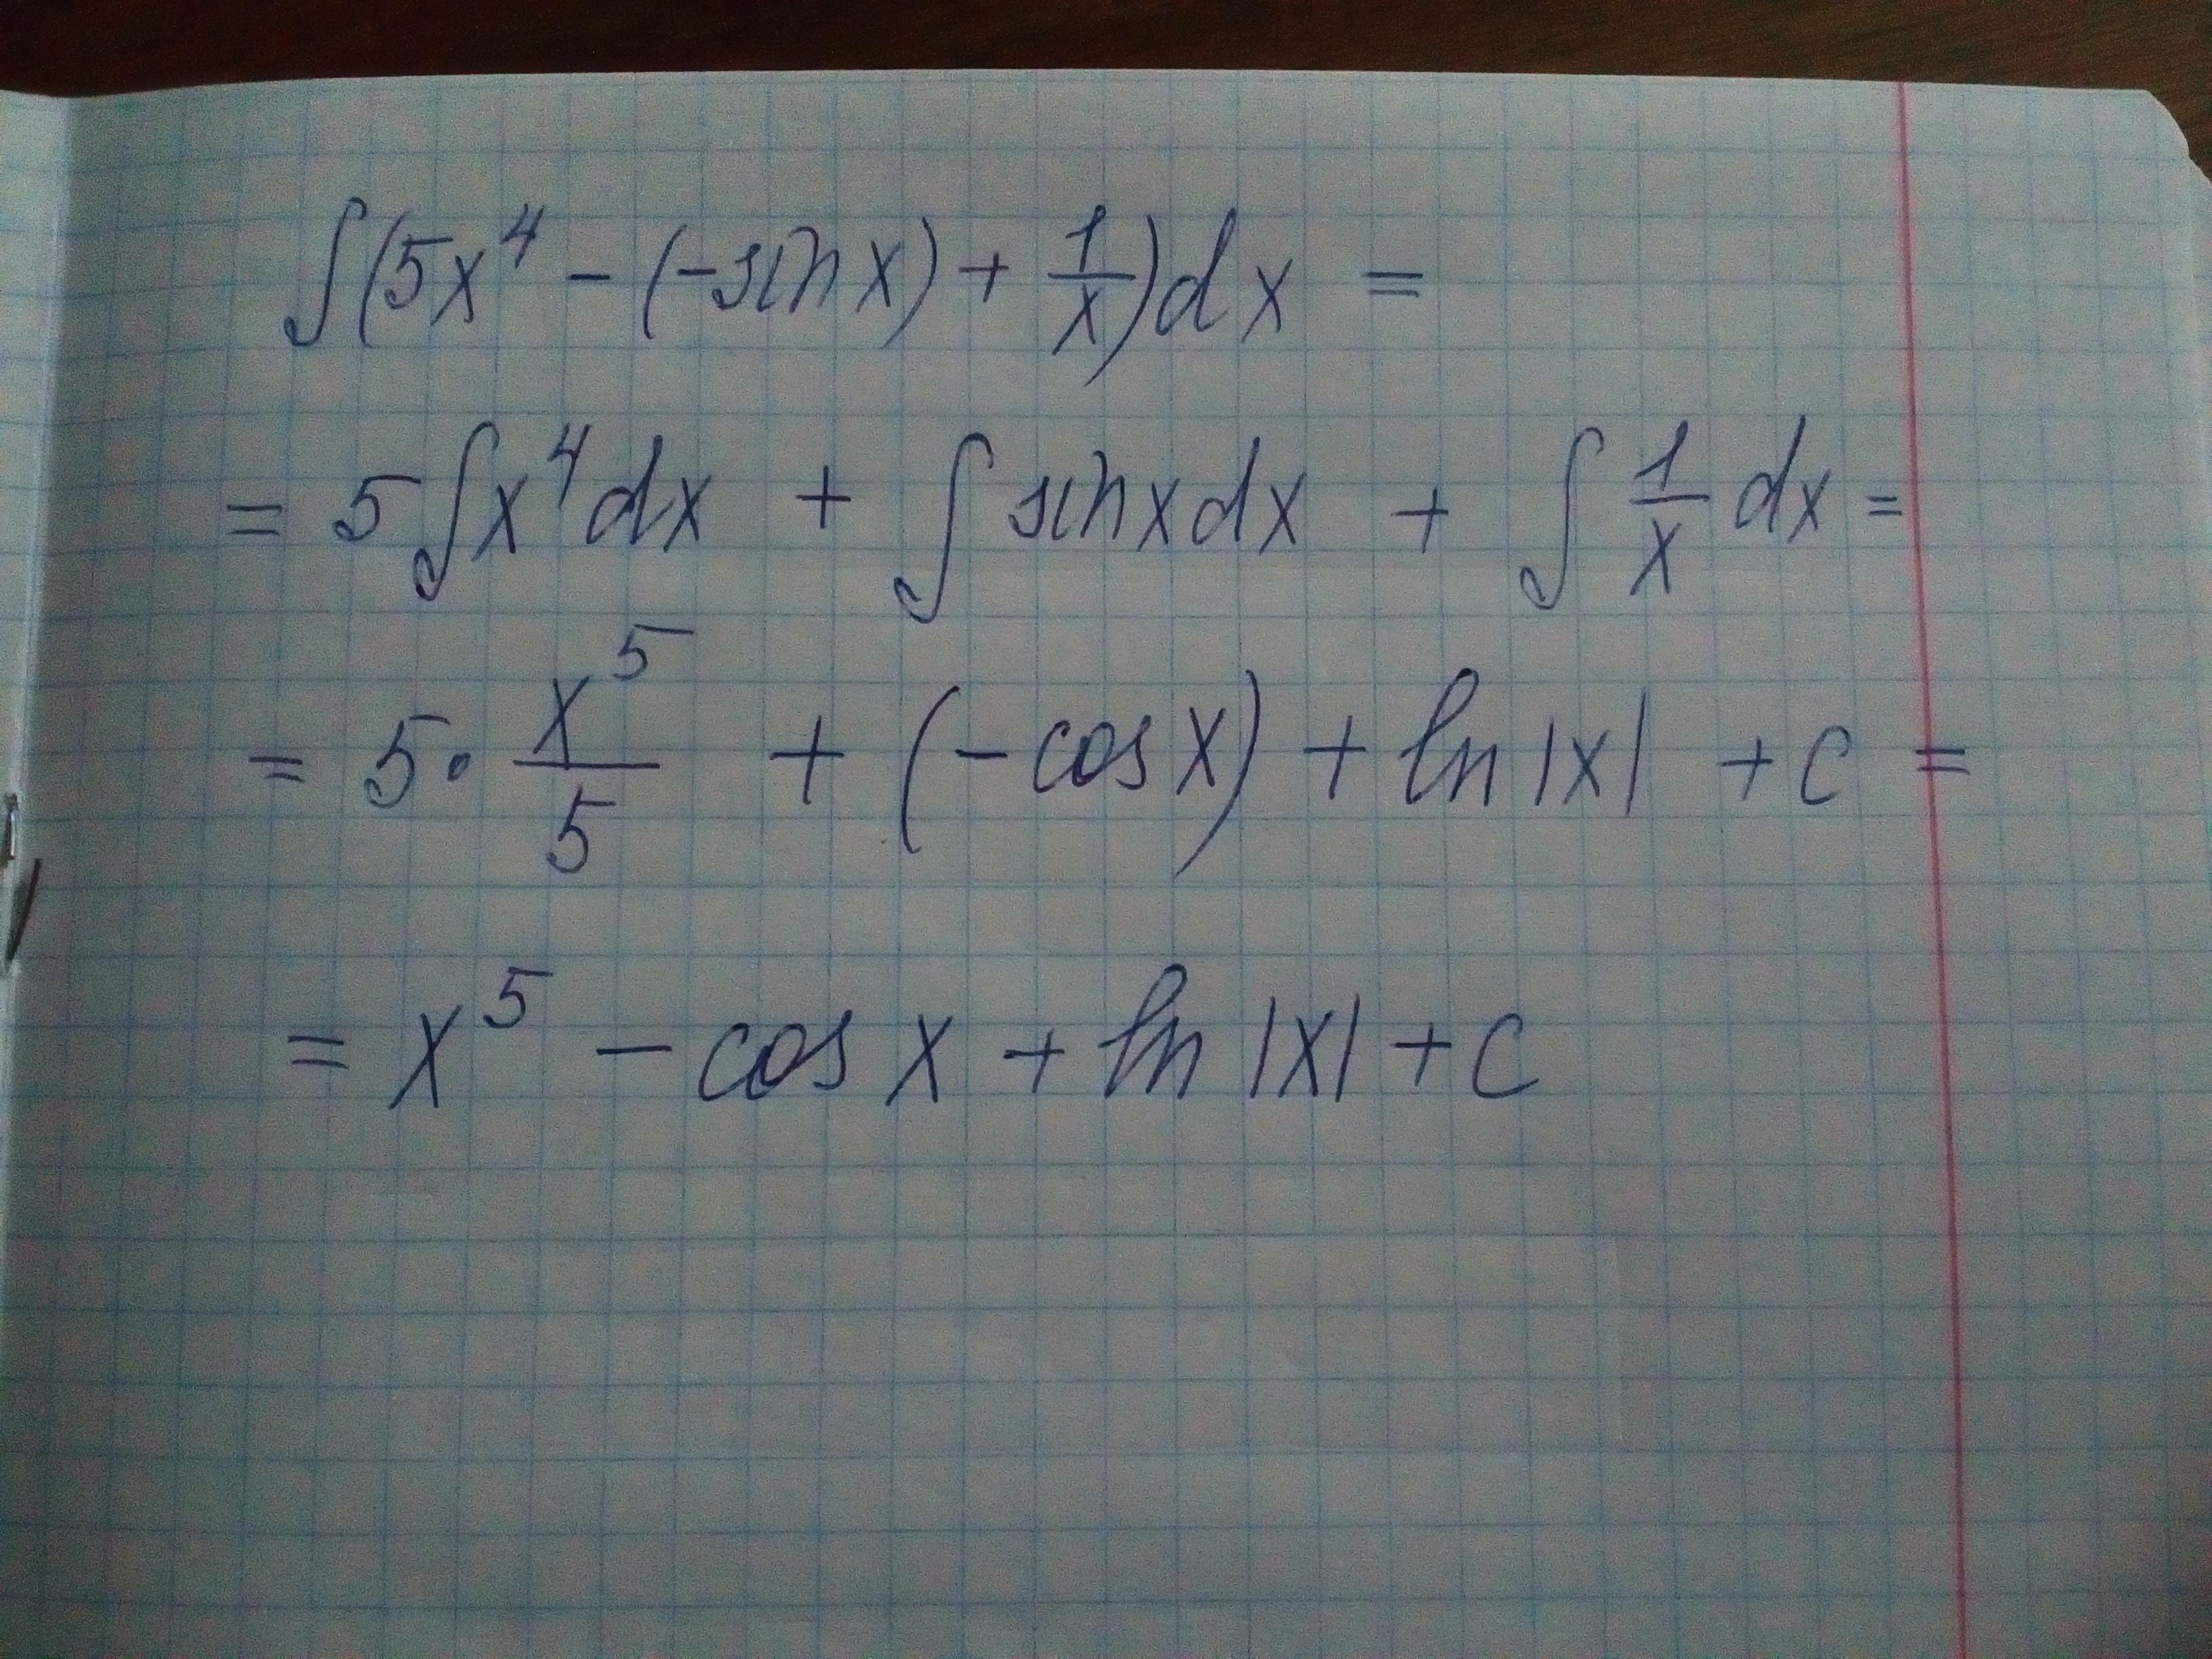 ∫(5x⁴ - (-sin x) + 1/x)dx =
= 5∫x⁴dx + ∫sin x dx + ∫ 1/x dx =
= 5 · x⁵/5 + (-cos x) + ln |x| + c =
= x⁵ - cos x + ln |x| + c